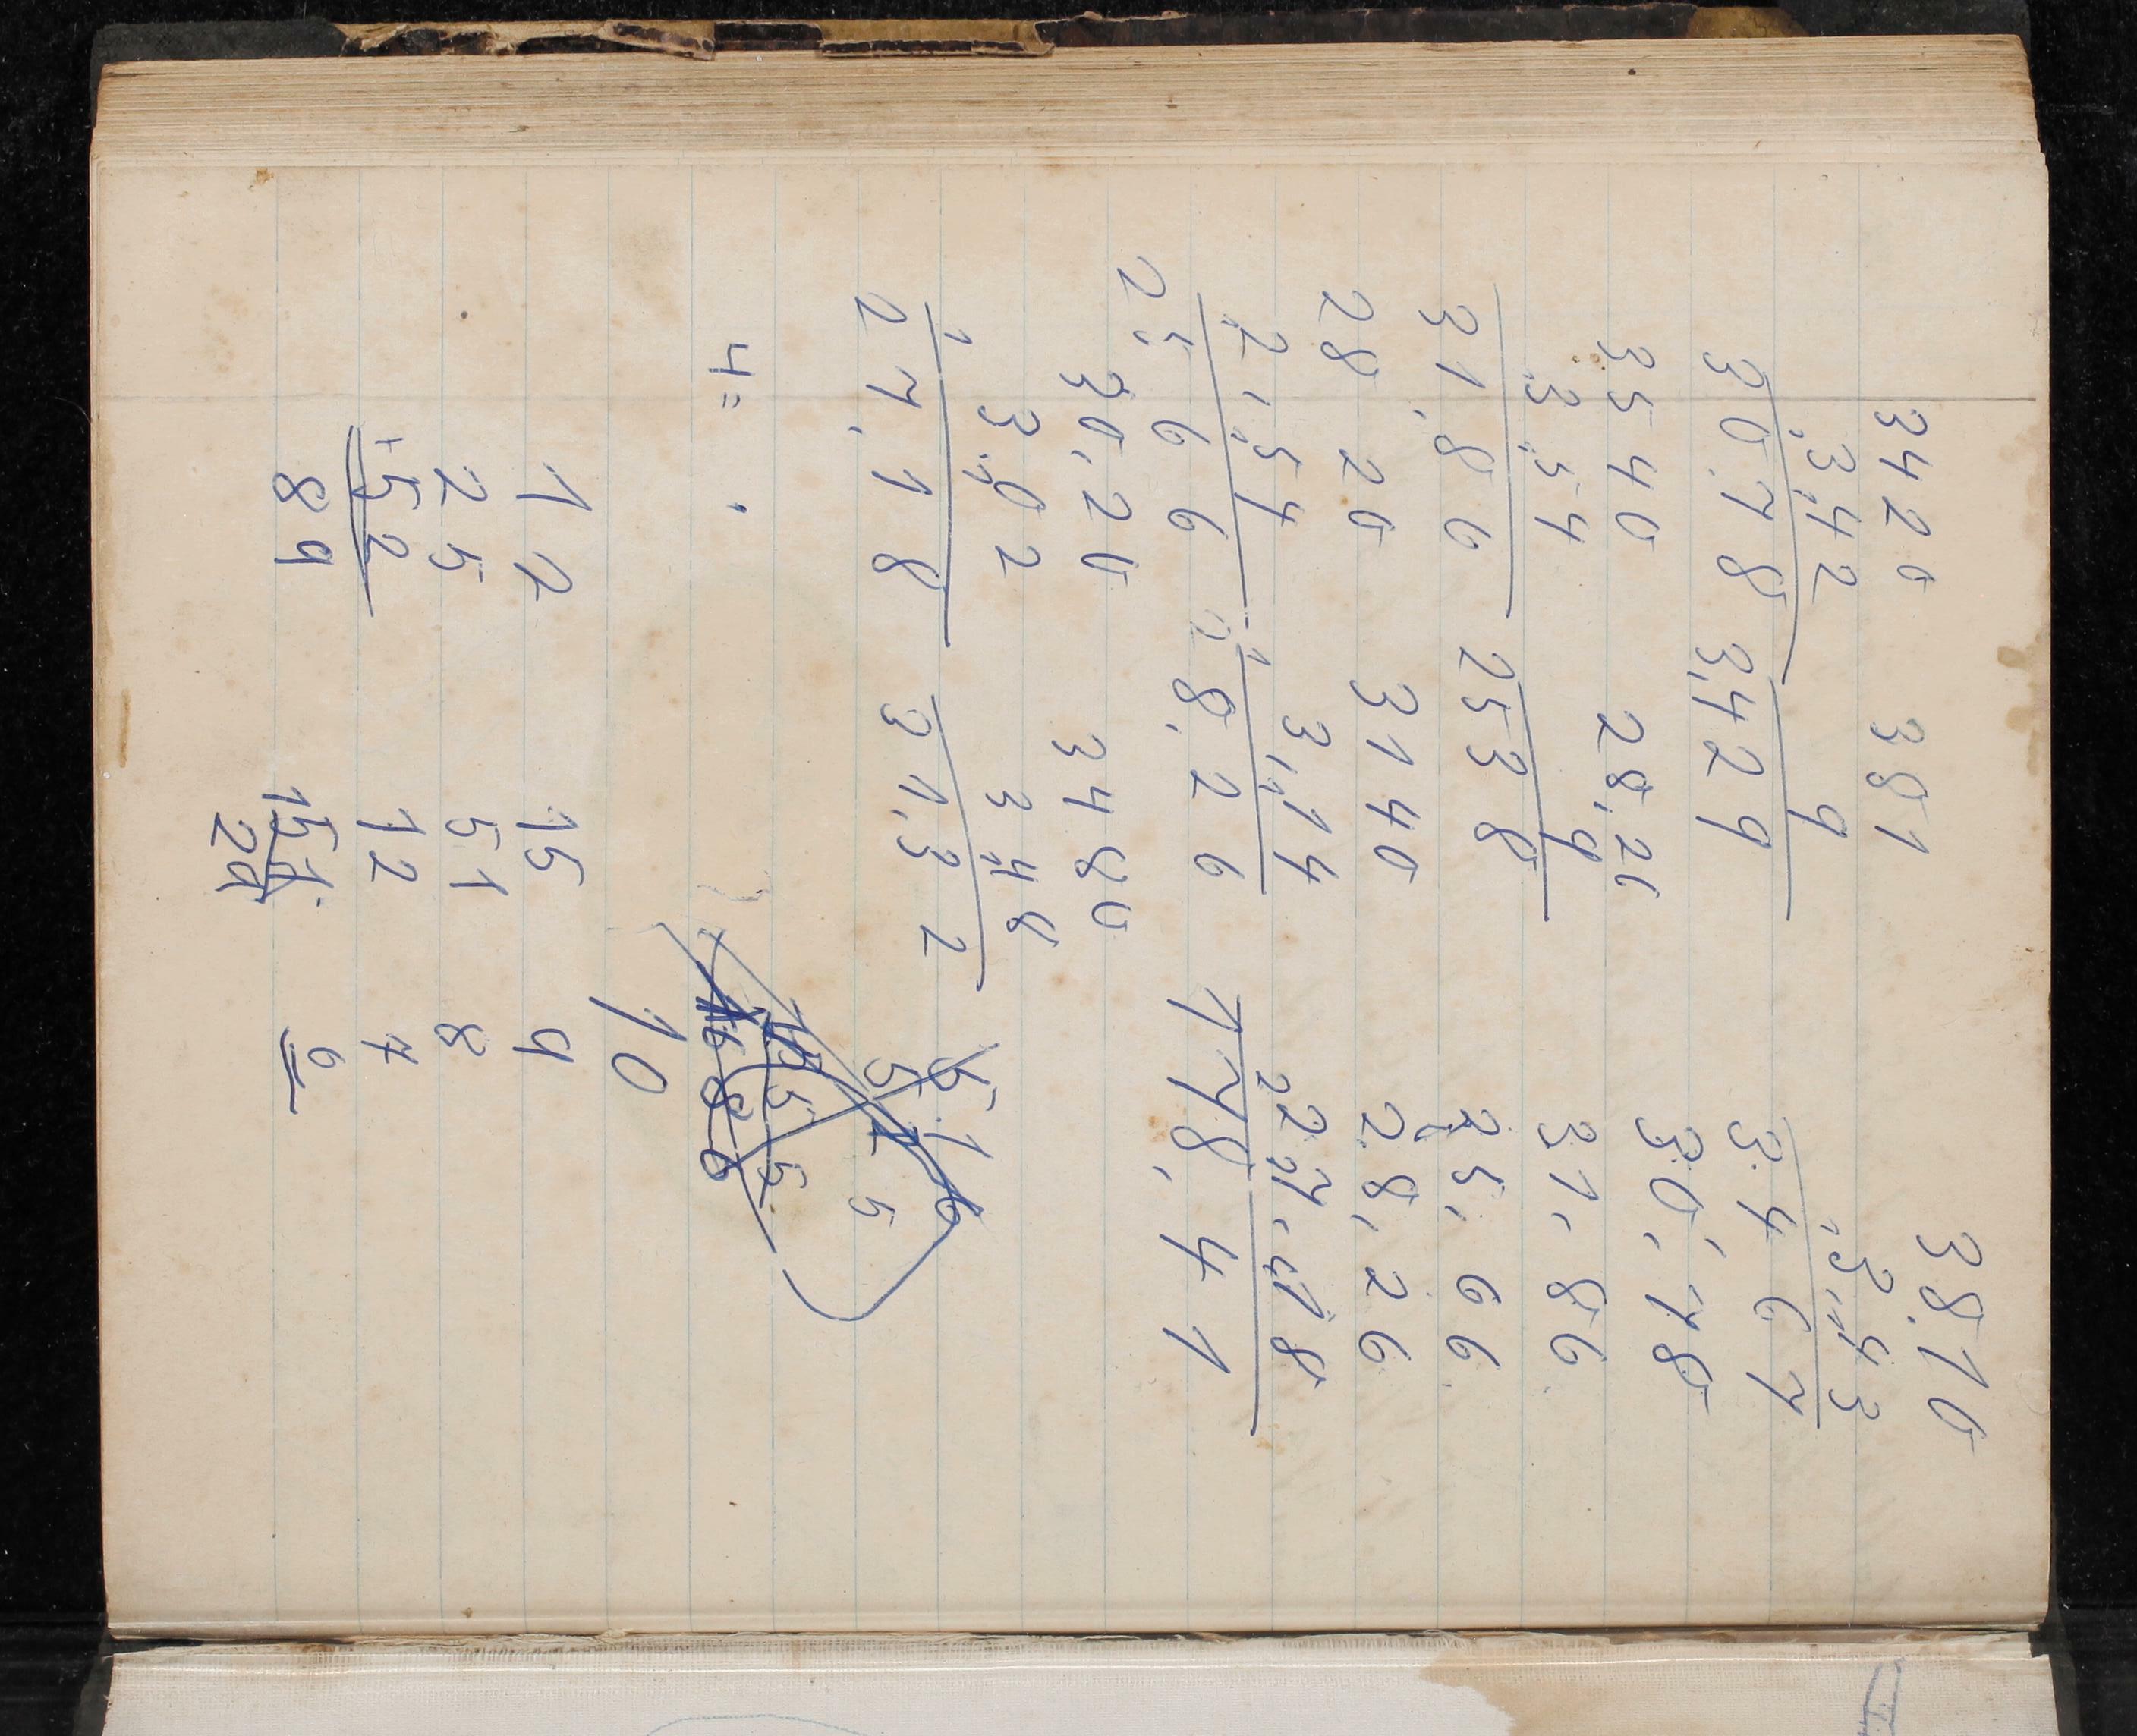 3420 381 3810
3.42 9 3.43
30.78 3,429 3467
3540 28,26 30,78
3.54 9 31,86
31.86 2538 25,66
2820 3140 28,26
2,54 3,14 27,18
25 66 28.26 178.41
30.20 3480
3.02 3.48
27.18 31.32
4=
10
12 15 9
25 51 8
52 12 7
89 151 6